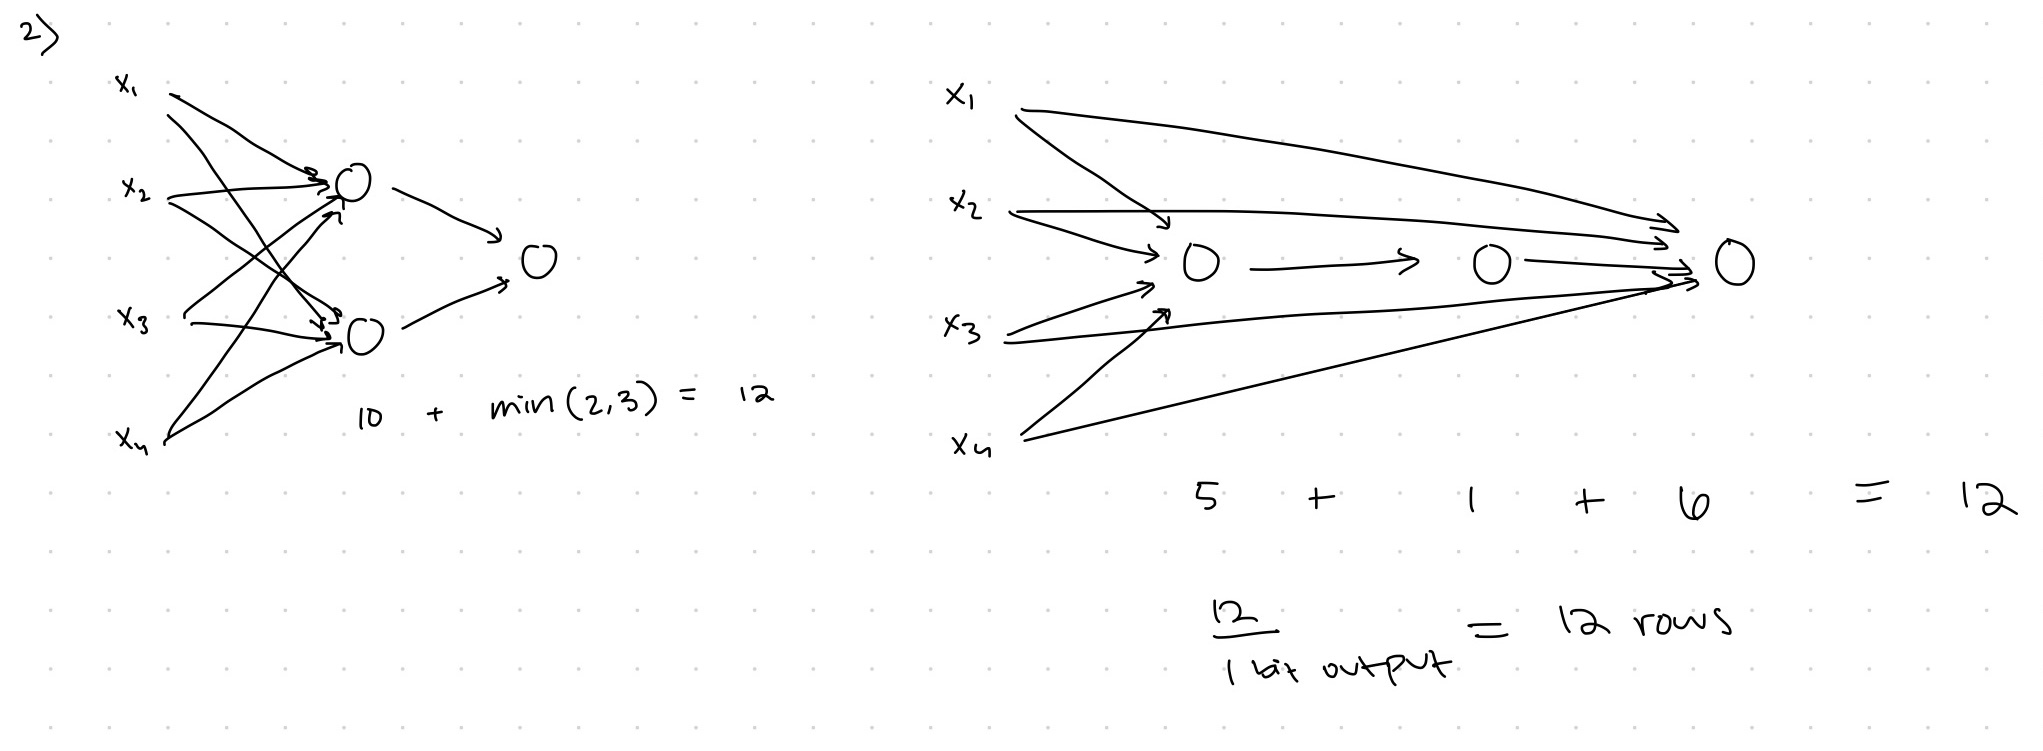 2)
x₁
x₂
x₃
x₄
10 + min(2,3) = 12
x₁
x₂
x₃
x₄
5 + 1 + 6 = 12
12
1 bit output
= 12 rows